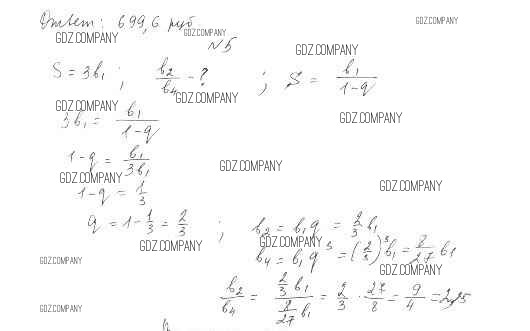 Ответ: 699,6 руб
GDZ.COMPANY
GDZ.COMPANY
GDZ.COMPANY
№5
GDZ.COMPANY
S = 3b₁ ; b₂/b₄ - ? ; S = b₁/(1-q)
GDZ.COMPANY
GDZ.COMPANY
3b₁ = b₁/(1-q)
GDZ.COMPANY
1-q = b₁/3b₁
GDZ.COMPANY
GDZ.COMPANY
GDZ.COMPANY
1-q = 1/3
q = 1 - 1/3 = 2/3 ; b₂ = b₁q = 2/3 b₁
GDZ.COMPANY
GDZ.COMPANY
b₄ = b₁q³ = (2/3)³b₁ = 8/27 b₁
GDZ.COMPANY
GDZ.COMPANY
b₂/b₄ = (2/3 b₁)/(8/27 b₁) = 2/3 · 27/8 = 9/4 = 2,25
GDZ.COMPANY